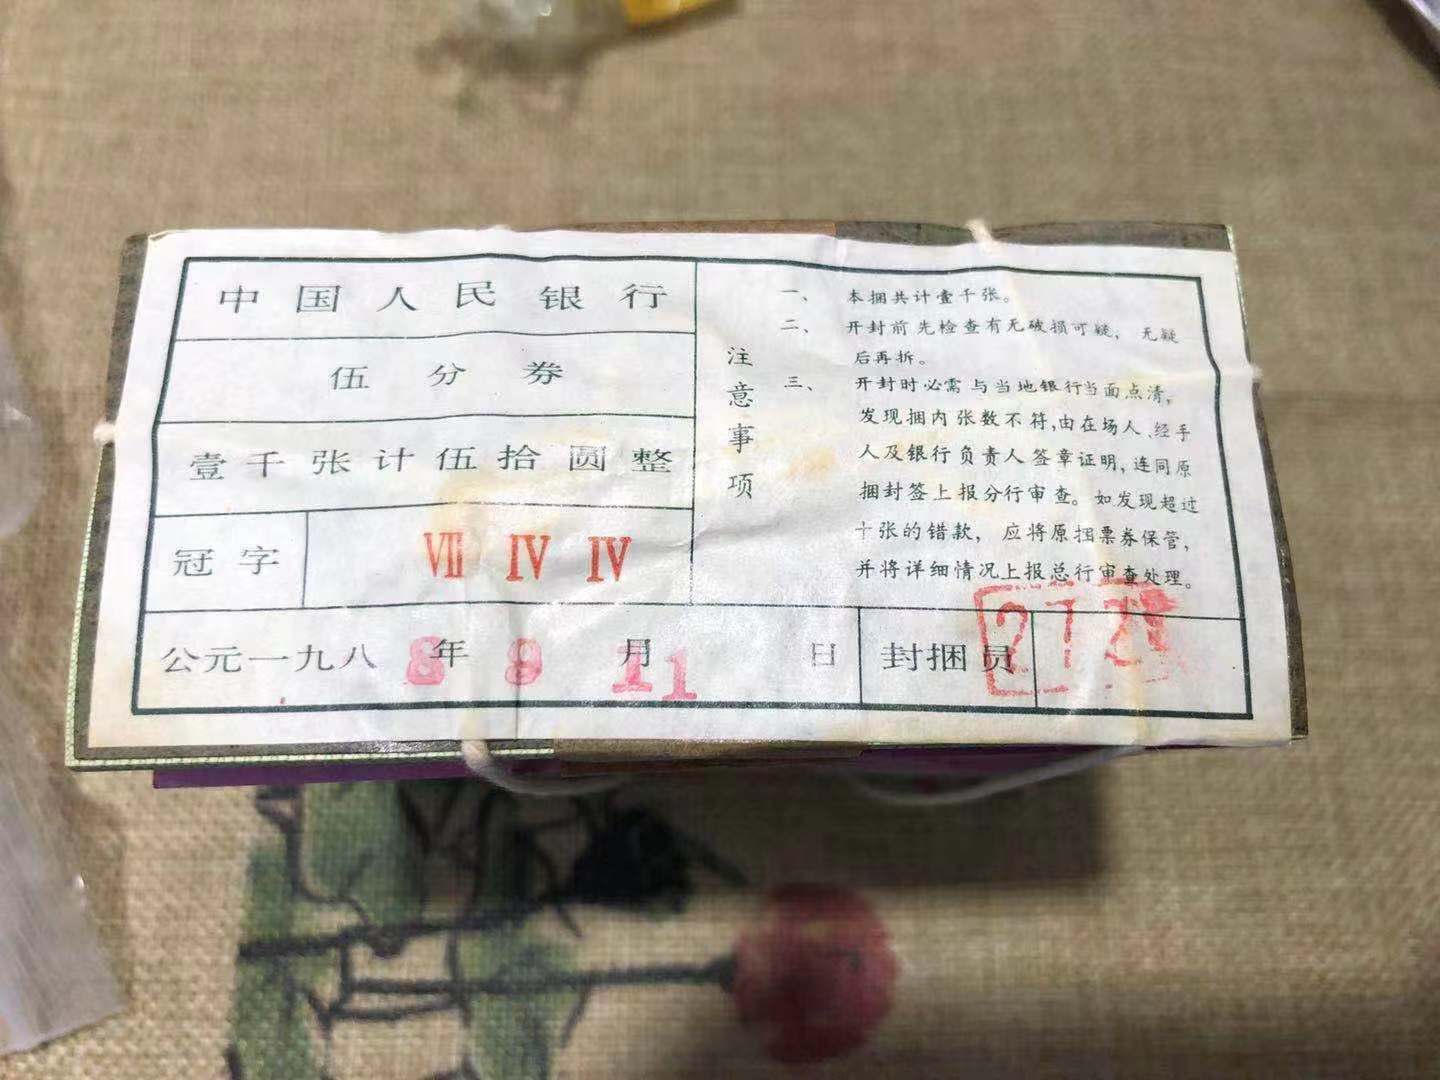 中国人民银行
伍分券
壹千张计伍拾圆整
冠字 Ⅶ Ⅳ Ⅳ
公元一九八8年9月11日 封捆员
注意事项
一、本捆共计壹千张。
二、开封前先检查有无破损可疑，无疑
后再拆。
三、开封时必需与当地银行当面点清，
发现捆内张数不符，由在场人、经手
人及银行负责人签章证明，连同原
捆封签上报分行审查。如发现超过
十张的错款，应将原捆票券保管，
并将详细情况上报总行审查处理。